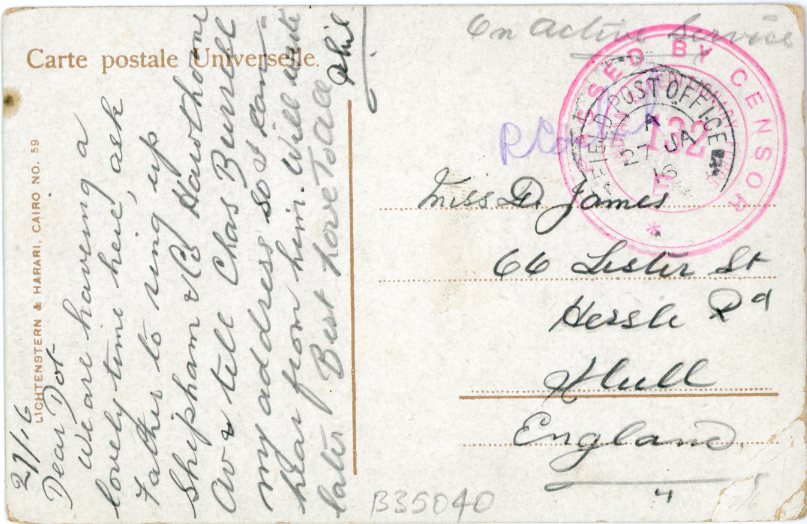 Carte postale Universelle.
On active Service
PASSED BY CENSOR
132
FIELD POST OFFICE
A
27 JA
16
Miss D. James
66 Lister St
Hessle Rd
Hull
England.
27/1/16
Dear Dot
We are haveing a
lovely time heir, ask
Father to ring up
Shipham & Co Hawthorne
Av & tell Chas Burrell
my address so I can
hear from him. Will write
later Best Love To All
Phil
LICHTENSTERN & HARARI, CAIRO NO. 59
B35040